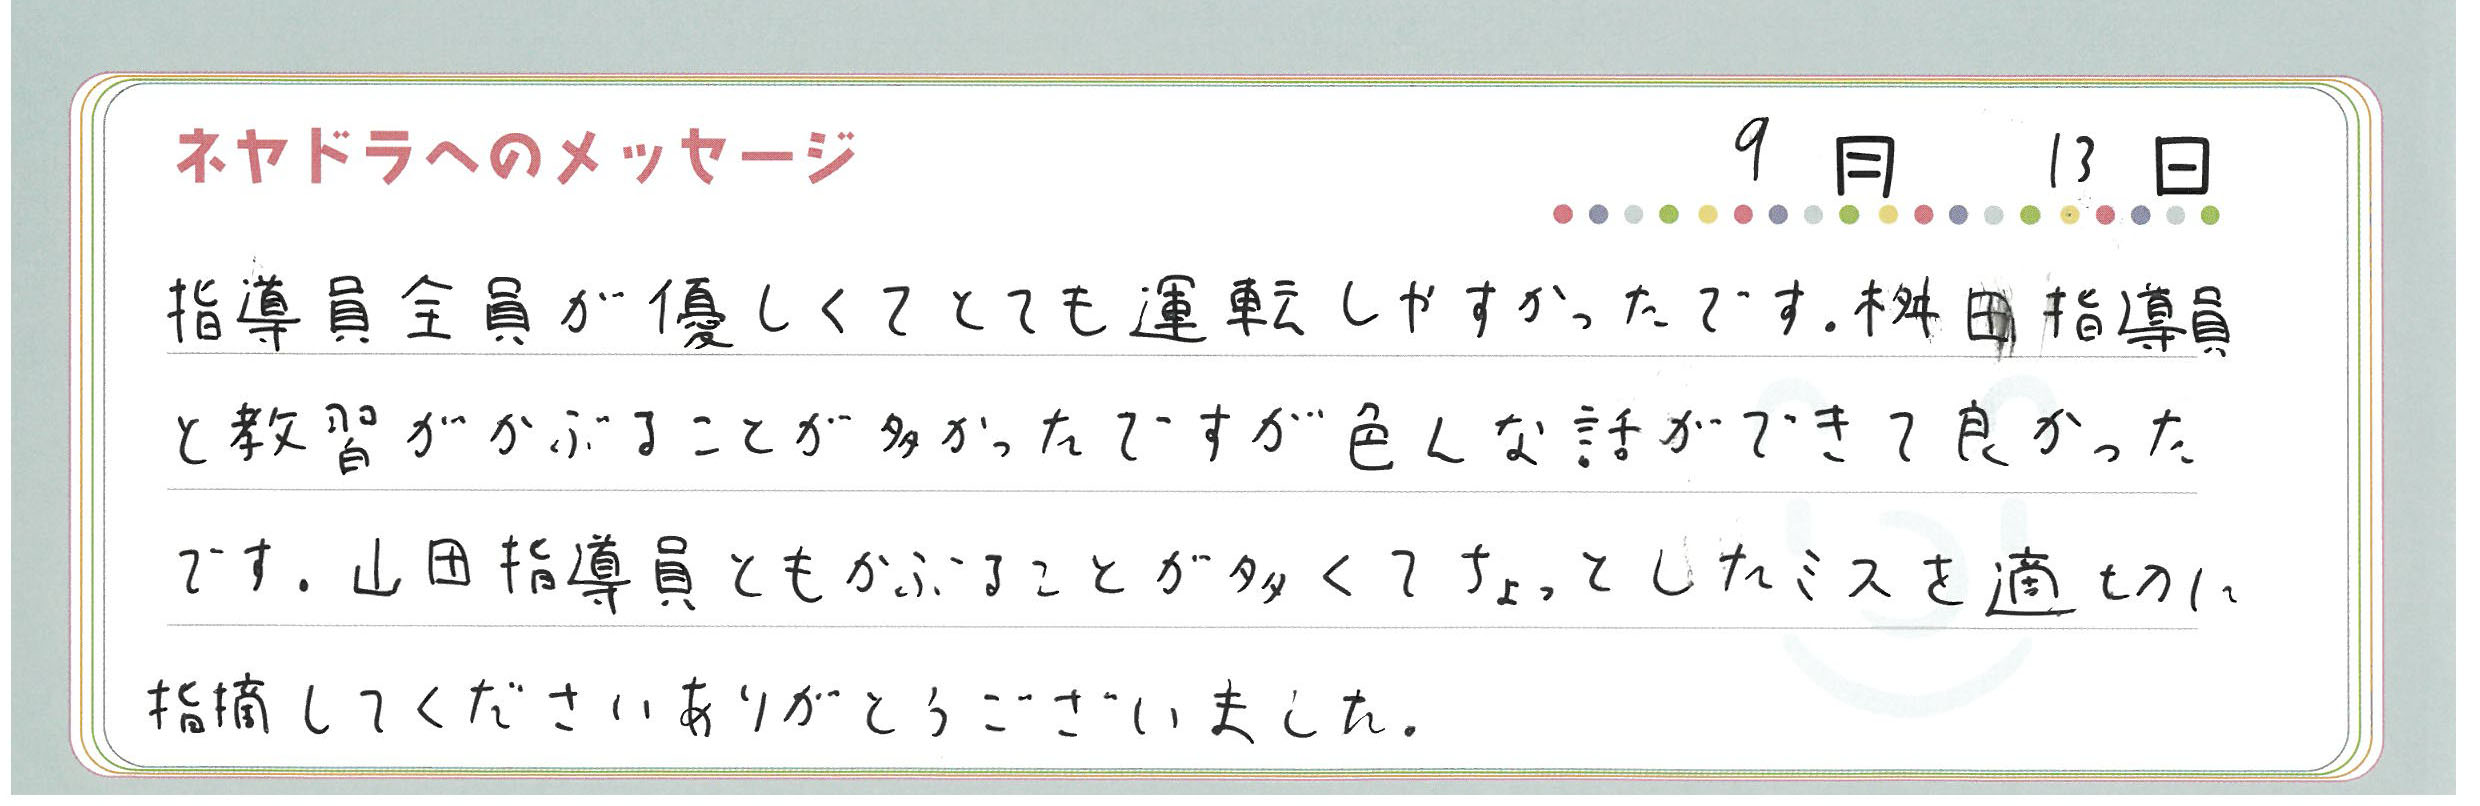 ネヤドラへのメッセージ
9月 13日
指導員全員が優しくてとても運転しやすかったです。桝田指導員
と教習がかぶることが多かったですが色んな話ができて良かった
です。山田指導員ともかぶることが多くてちょっとしたミスを適切に
指摘してくださいありがとうございました。